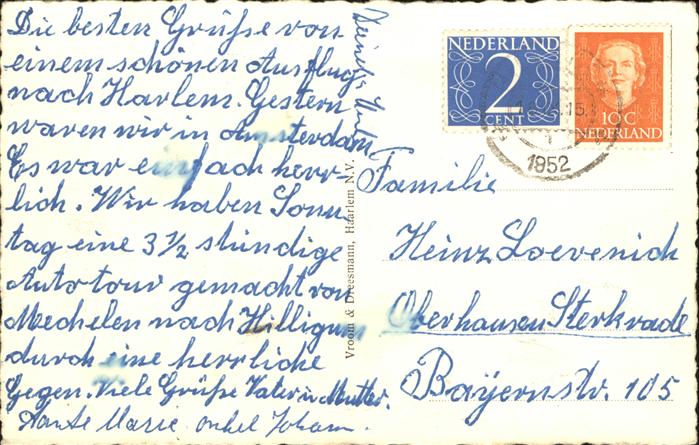 Die besten Grüße von
einem schönen Ausflug
nach Harlem. Gestern
waren wir in Amsterdam
Es war einfach herr-
lich. Wir haben Sonn
tag eine 3 1/2 stündige
Autotour gemacht von
Mechelen nach Hilligum
durch eine herrliche
Gegen. Viele Grüße Vater u Mutter.
Tante Marie onkel Johann
Vroom & Dreesmann, Haarlem N.V.
NEDERLAND
2
CENT
10C
NEDERLAND
1952
Familie
Heinz Loevenich
Oberhausen Sterkrade
Bayernstr. 105